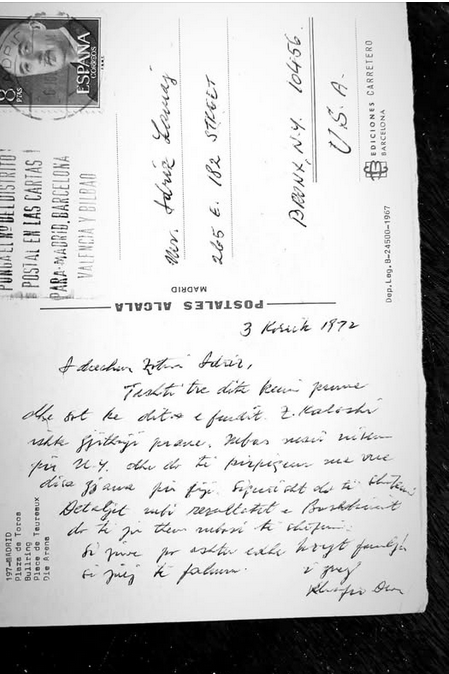 ESPAÑA
CORREOS
PONGA EL Nº DEL DISTRITO
POSTAL EN LAS CARTAS
PARA MADRID, BARCELONA
VALENCIA Y BILBAO
Mr. Idriz Lamaj
265 E. 182 STREET
BRONX, N.Y. 10456.
U.S.A.
EDICIONES CARRETERO
BARCELONA
Dep. Leg. B-24500-1967
POSTALES ALCALA
MADRID
3 Korrik 1972
I dashur Zotni Idriz,
Tashti tre ditë kemi punue
dhe sot ka ditën e fundit. Z. Kaloshi
është gjithnji prane. Mbas nesri nisem
për N.Y. dhe do të përpiqem me vue
disa gjana për fije. Sigurisht do të shifemi
Detaljet mbi rezultatet e Bashkimit
do të ju them mbasi të shifemi.
Si juve po ashtu edhe krejt familjes
si juej të falem.
i juej
197-MADRID
Plaza de Toros
Bullring
Place de Taureaux
Die Arena